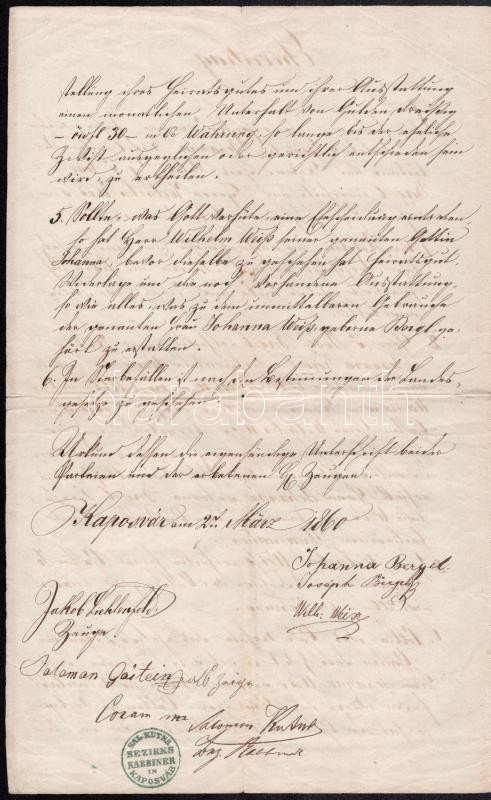 stellung ihres Heiratsgutes und ihrer Ausstattung
einen monatlichen Unterhalt von Gulden dreißig
30 in Oe Wahrung, so lange bis der eheliche
Zwist ausgeglichen oder gerichtlich entschieden sein
wird, zu ertheilen.
5. Sollte, was Gott verhüte, eine Entscheidung eintreten
so hat Herr Wilhelm Weiß seiner genannten Gattin
Johanna, bevor dieselbe zu geschehen hat Heiratsgut,
Widerlage und die noch vorhandene Ausstattung,
so wie alles, was zu dem unmittelbaren Gebrauche
der genannten Frau Johanna Weiß geborne Bergl ge-
hört zu erstatten.
6. In Sterbefällen ist nach den Bestimmungen der Landes-
gesetze zu geschehen
darabanth
Urkund dessen die eigenhändige Unterschrift beider
Parteien und der erbetenen H. Zeugen.
Kaposvár am 2ten März 1860
Johanna Bergel.
Joseph Bergel
Wilh. Weisz
Jakob Lichtenfeld.
Zeuge.
Salaman als Zeuge
Coram me
Salomon Kutna
Bez. Rabbiner
SAL. KUTNA
BEZIRKS
RABBINER
IN
KAPOSVÁR